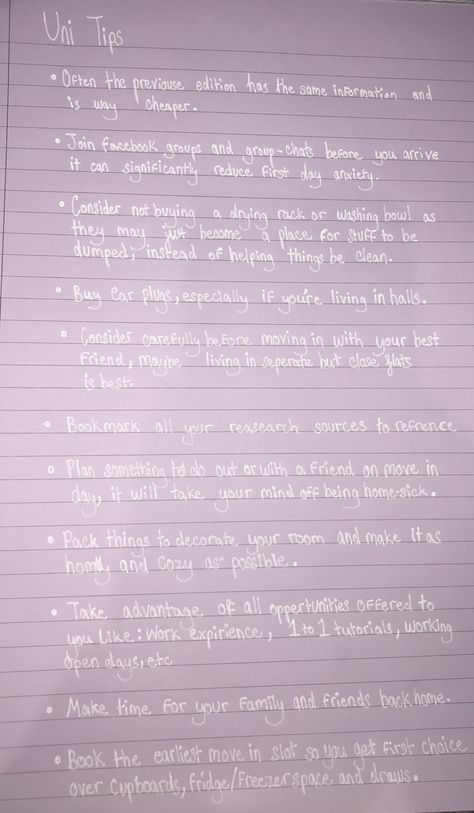 Uni Tips
• Often the previouse edition has the same information and
is way cheaper.
• Join facebook groups and group-chats before you arrive
it can significantly reduce first day anxiety.
• Consider not buying a drying rack or washing bowl as
they may just become a place for stuff to be
dumped, instead of helping things be clean.
• Buy ear plugs, especially if you're living in halls.
• Consider carefully before moving in with your best
friend, maybe living in seperate but close flats
is best.
• Bookmark all your reasearch sources to refrence
• Plan something to do out or with a friend on move in
day, it will take your mind off being home-sick.
• Pack things to decorate your room and make it as
homly and cozy as possible.
• Take advantage of all oppertunities offered to
you like: work expirience, 1 to 1 tutorials, working
open days, etc
• Make time for your family and friends back home.
• Book the earliest move in slot so you get first choice
over cupboards, fridge/freezer space and draws.